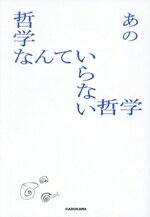 あの
哲学なんていらない哲学
KADOKAWA